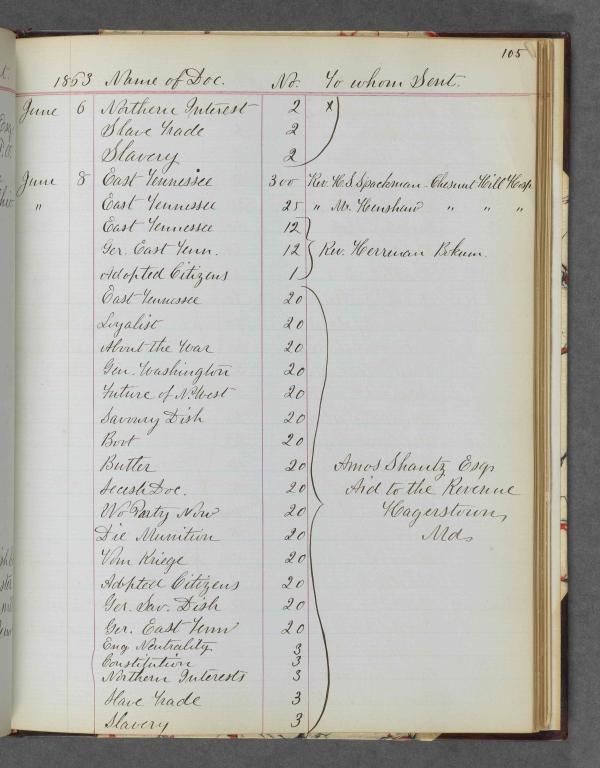 105
1863 Name of Doc. No. To whom Sent.
June 6 Northern Interest 2 x
Slave Trade 2
Slavery 2
June 8 East Tennessee 300 Rev. H. S. Spackman Chesnut Hill Hosp
" East Tennessee 25 " Mr. Henshaw " " "
East Tennessee 12
Ger. East Tenn. 12 Rev. Herrman Bokum.
Adopted Citizens 1
East Tennessee 20
Loyalist 20
About the War 20
Gen. Washington 20
Future of N. West 20
Savoury Dish 20
Boot 20
Butler 20 Amos Shantz Esq.
Secesh Doc. 20 Aid to the Revenue
No Party Now 20 Hagerstown,
Die Munition 20 Md.
Vom Kriege 20
Adopted Citizens 20
Ger. Sav. Dish 20
Ger. East Tenn 20
Eng Neutrality 3
Constitution 3
Northern Interests 3
Slave Trade 3
Slavery 3